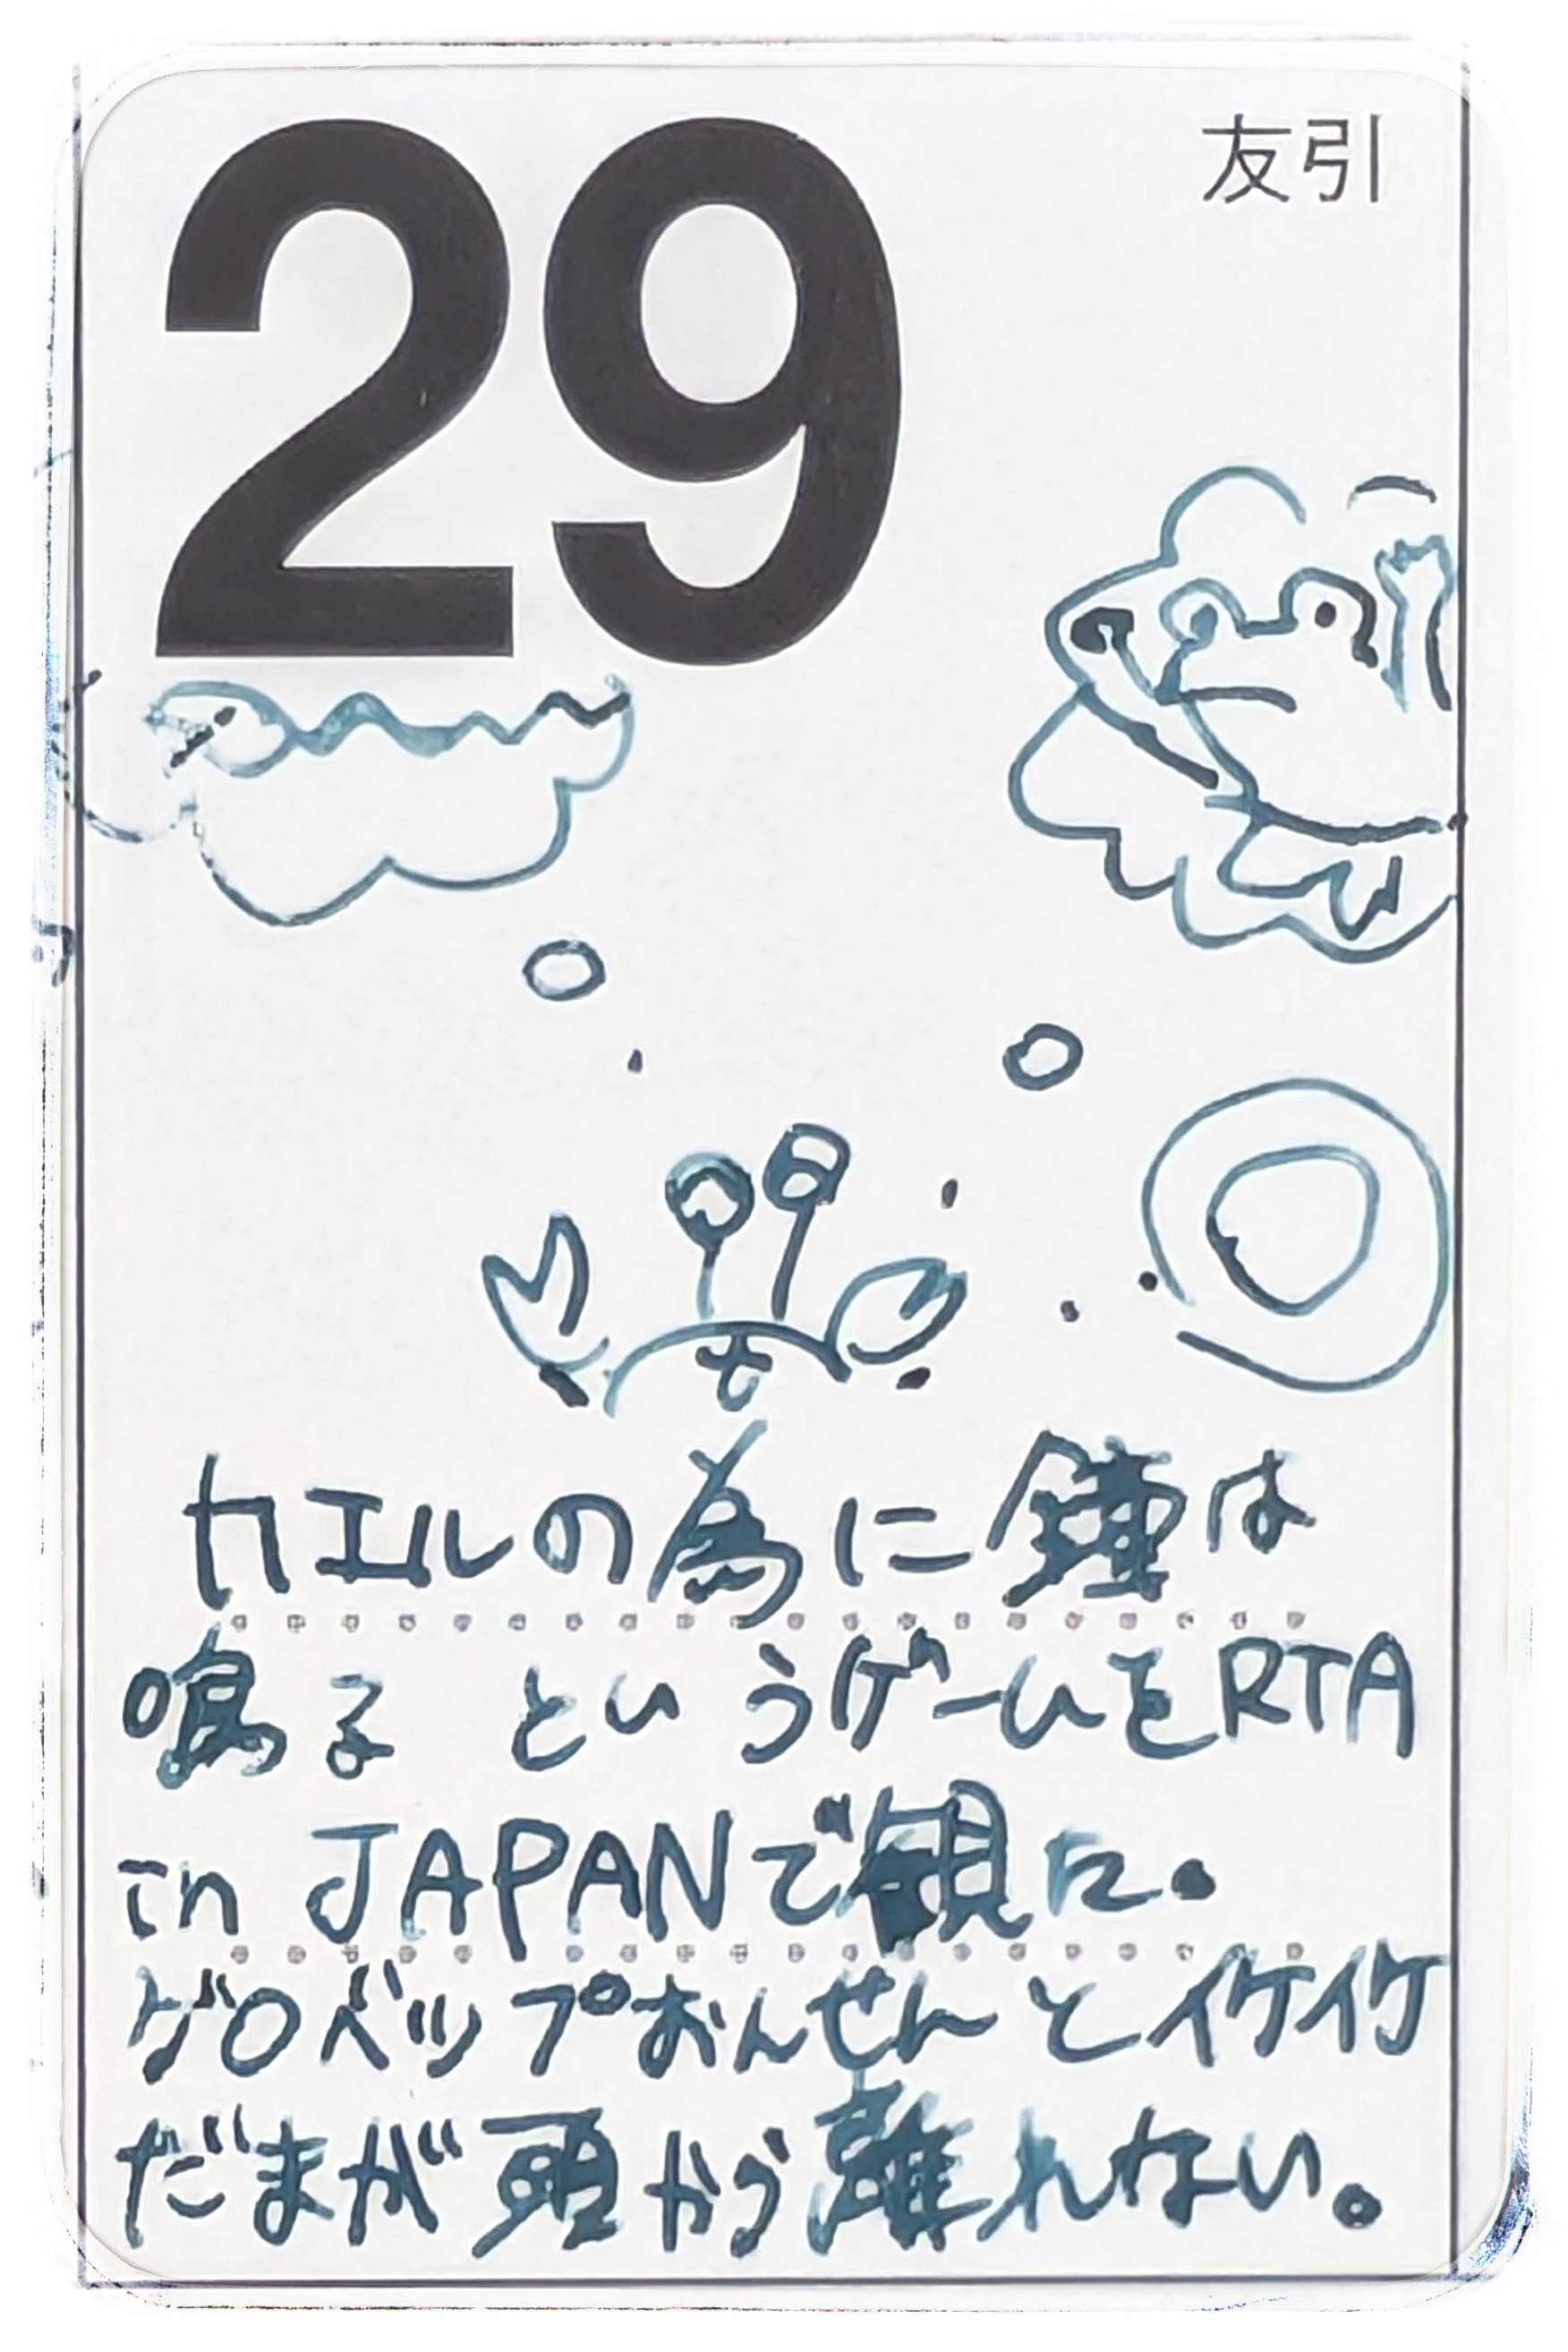 29
友引
カエルの為に鐘は
鳴る というゲームをRTA
in JAPANで観た。
ゲロベップおんせんとイケイケ
だまが頭から離れない。